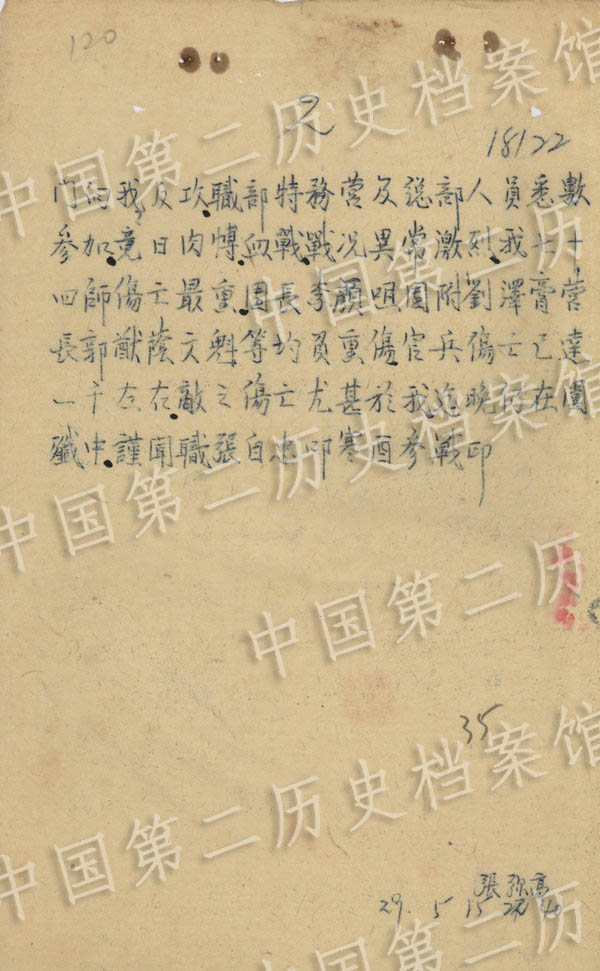 120
2
18122
門向我反攻職部特務营及总部人員悉数
参加竟日肉博血戰戰况異常激烈我七十
四師傷亡最重團長李顏咀團附劉澤膏营
長郭猷蔭文魁等均員重傷官兵傷亡已達
一千左右敵之傷亡尤甚於我迄晚仍在圍
殲中謹聞職張自忠叩寒酉参戰印
35
張
29. 5 15 40
中国第二历史档案馆
中国第二历史档案馆
中国第二历
中国第二历史档案馆
中国第二历
中国第二历史档案馆
中国第二历